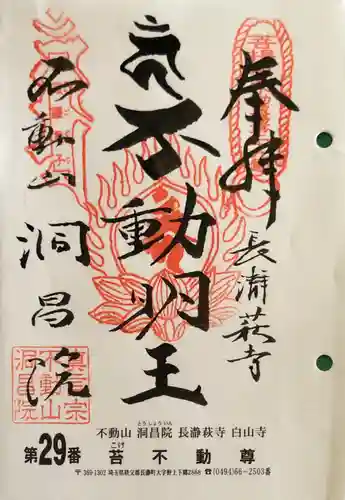 奉拝
長瀞萩寺
不動明王
不動山
洞昌院
真言宗
不動山
洞昌院
不動山 洞昌院 長瀞萩寺 白山寺
とうしょういん
第29番 苔不動尊
こけ
〒369-1302 埼玉県秩父郡長瀞町大字野上下郷2868 ☎(0494)66-2503番